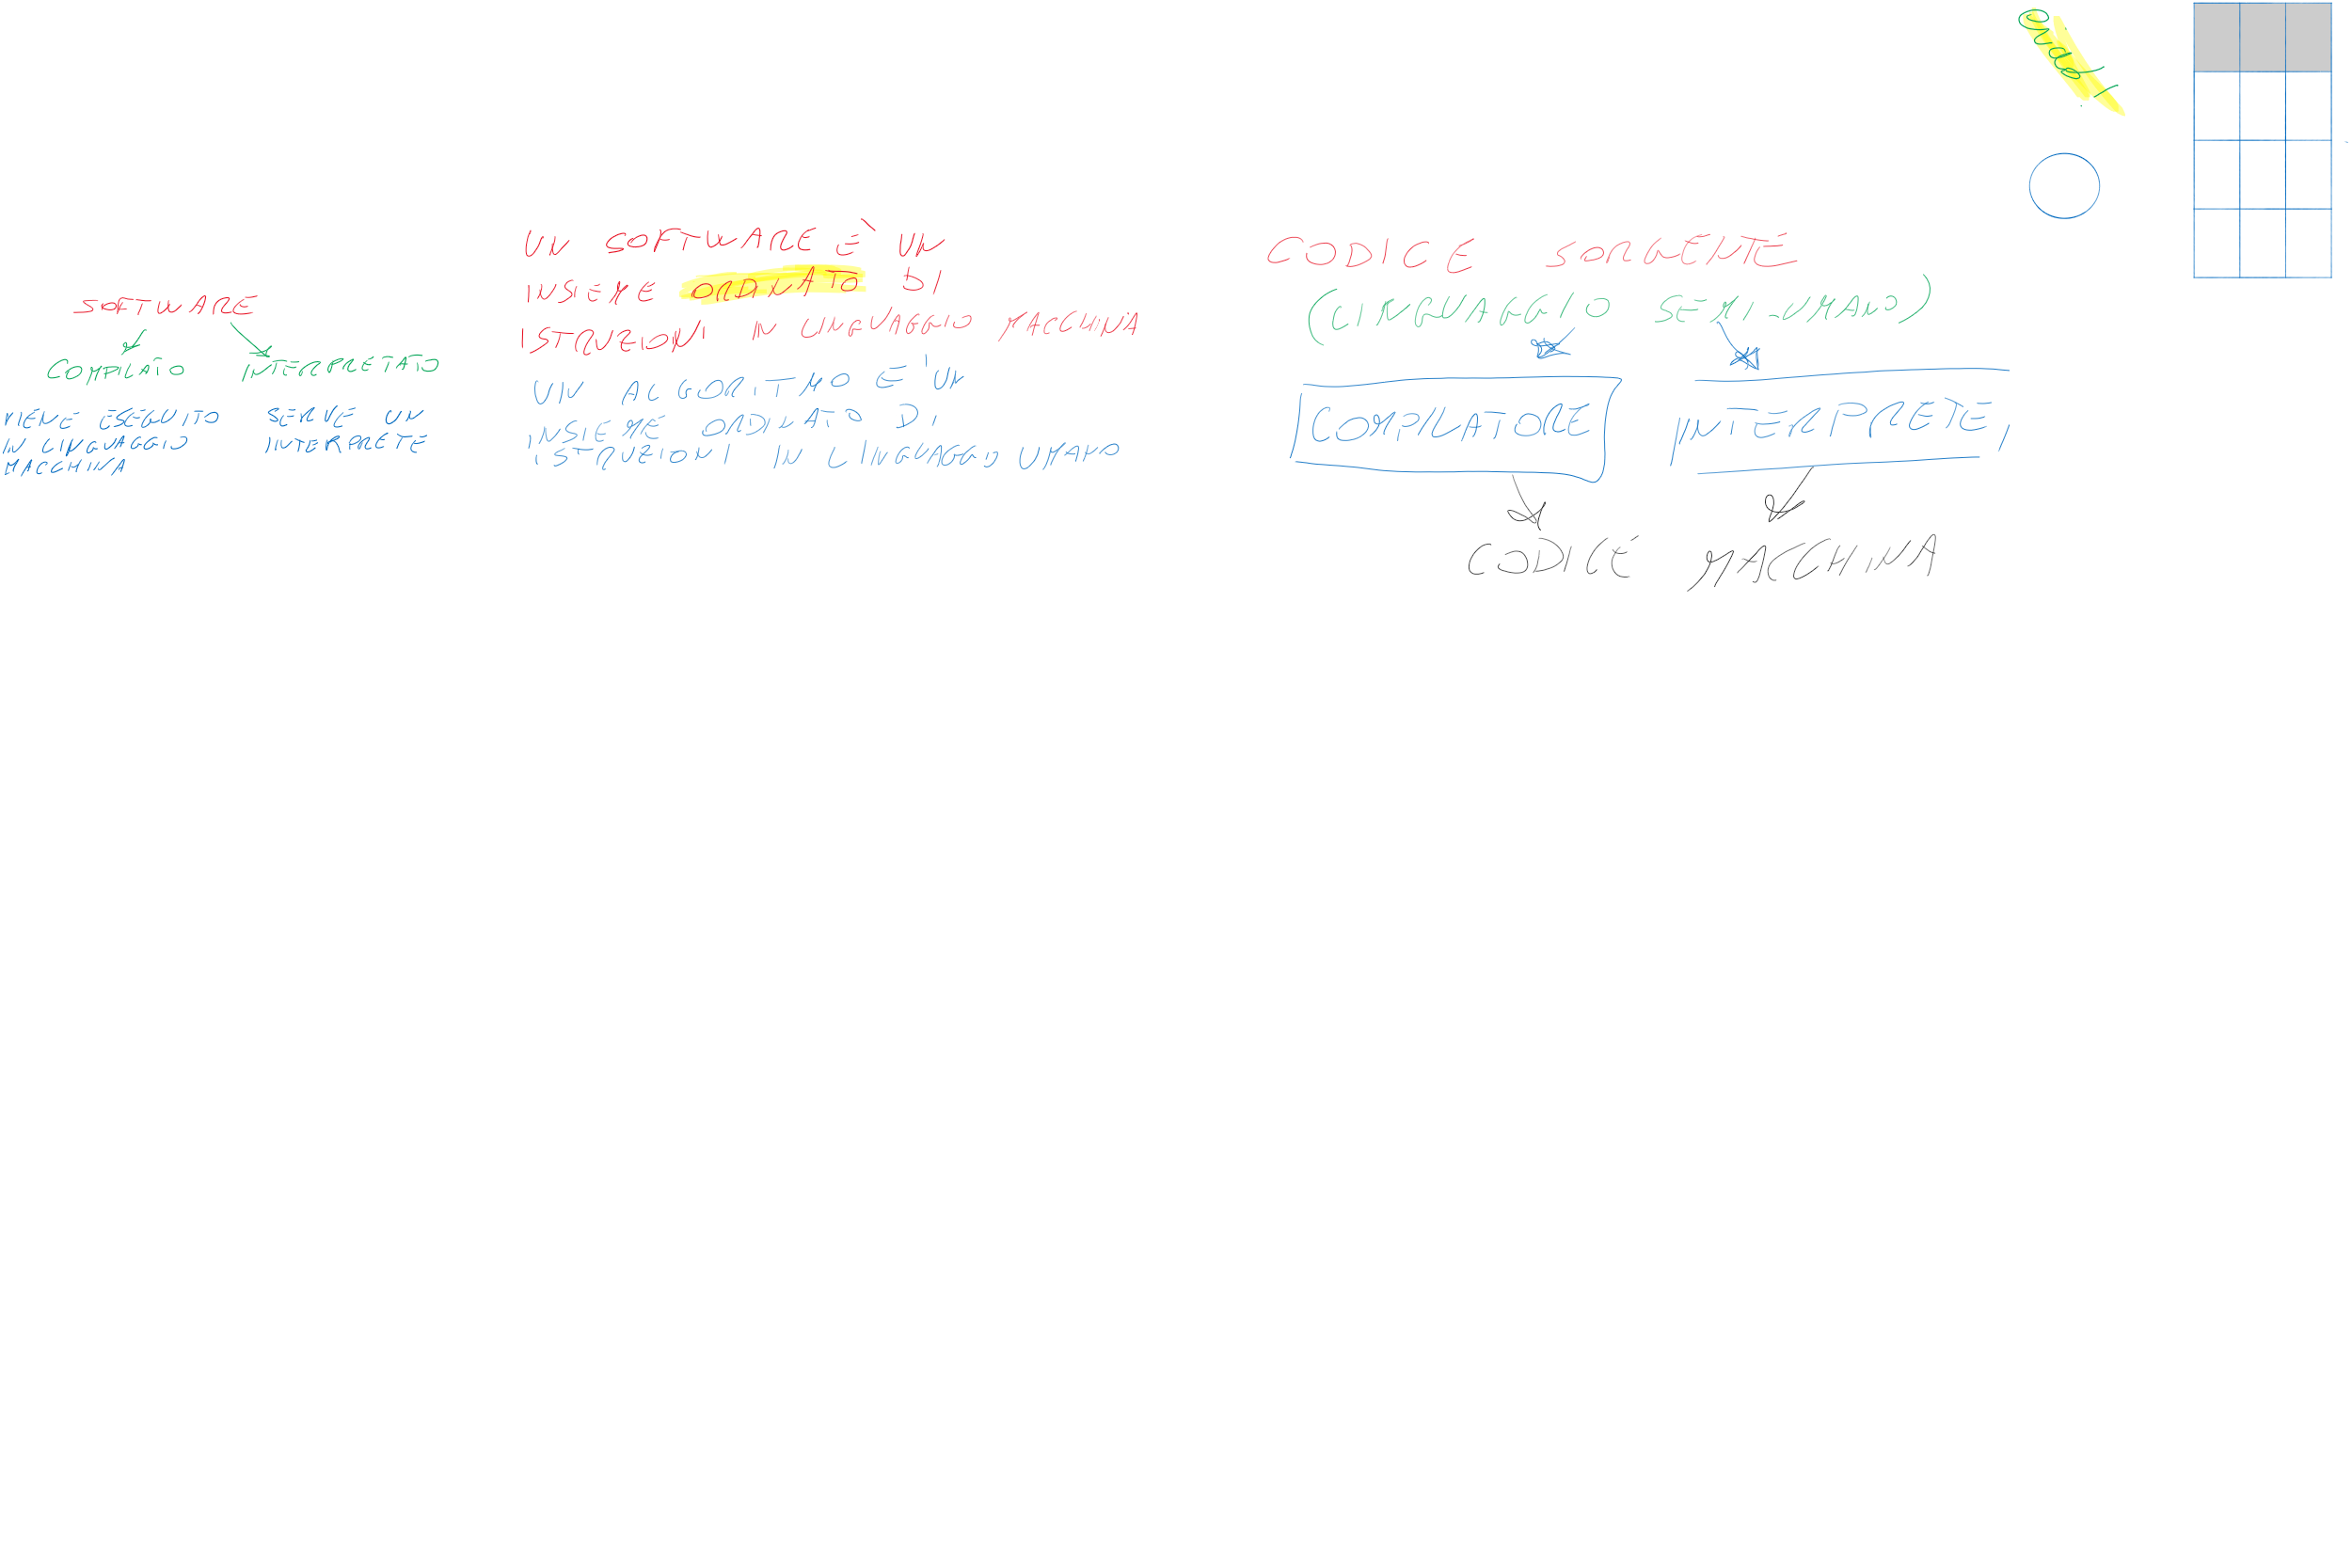 SOFTWARE
COMPILATO INTERPRETATO
VIENE ESEGUITO
IN LINGUAGGIO
MACCHINA
SERVE UN
INTERPRETE
UN SOFTWARE È UN
INSIEME ORDINATO DI
ISTRUZIONI IN LINGUAGGIO MACCHINA
UN ALGORITMO E' UN
INSIEME ORDINATO DI
ISTRUZIONI IN LINGUAGGIO UMANO
CODICE SORGENTE
(LINGUAGGIO SEMI-UMANO)
COMPILATORE INTERPRETE
CODICE MACCHINA